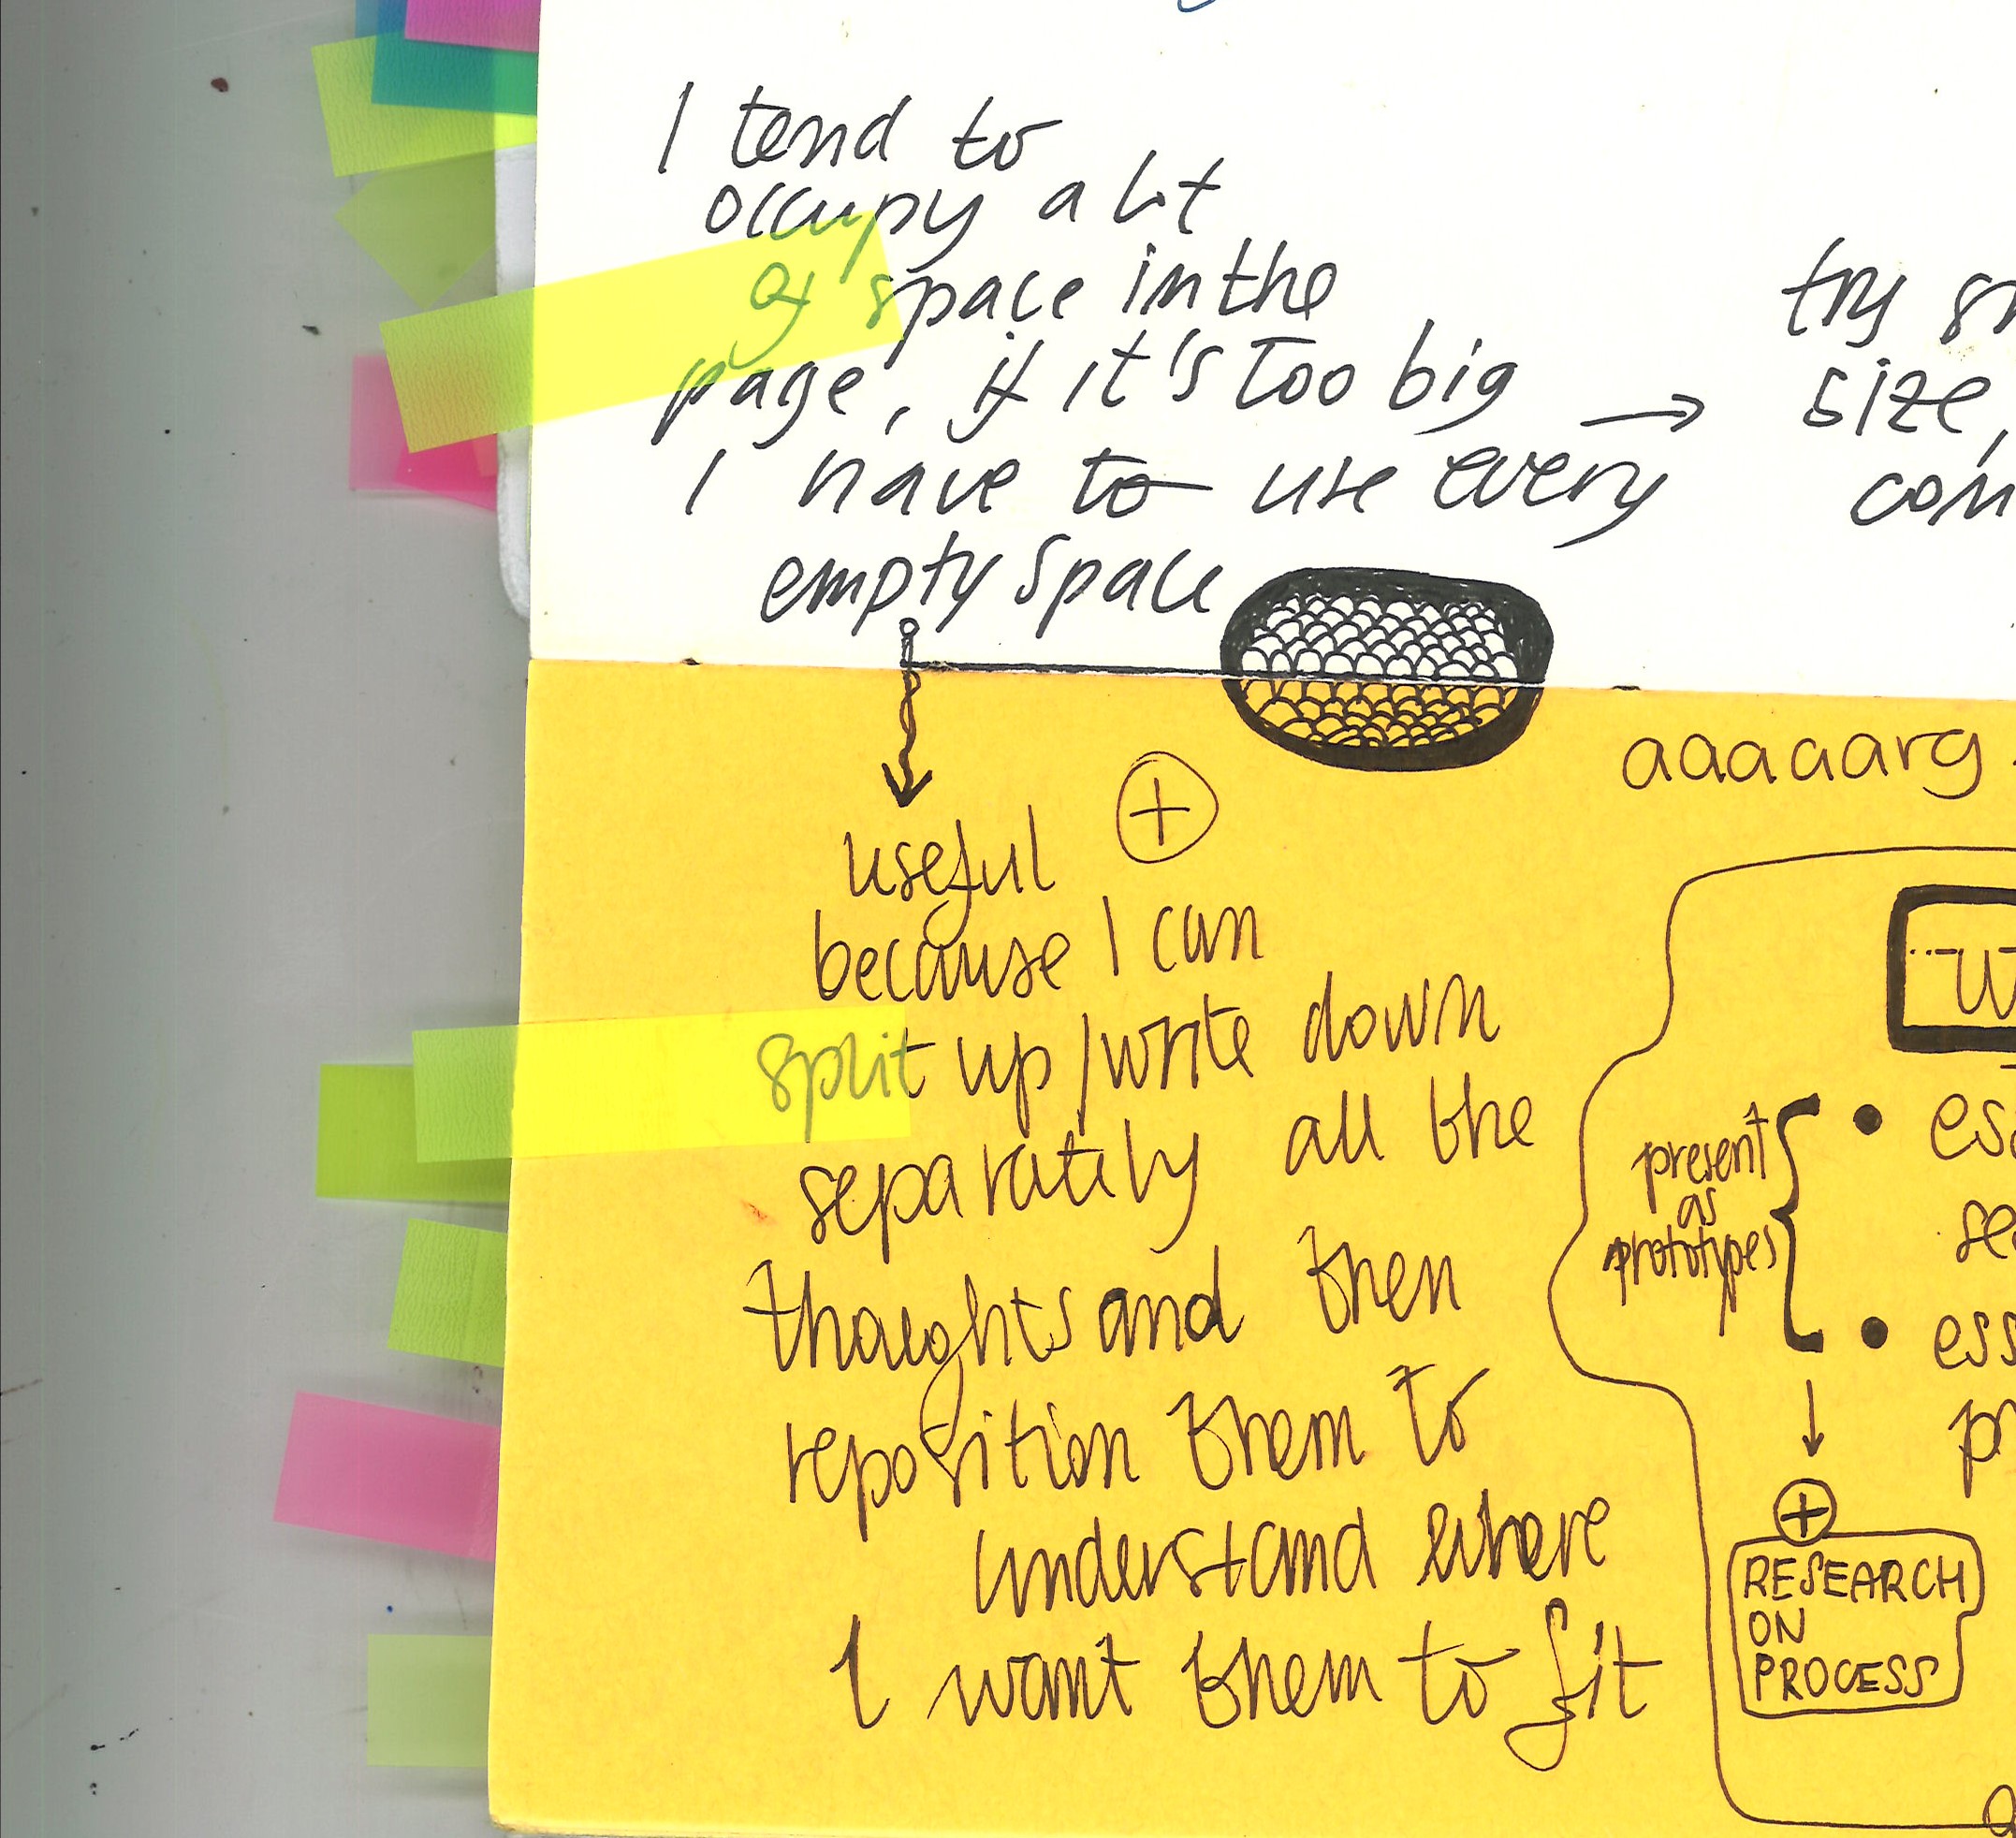 I tend to
occupy a lot
of space in the
page, if it's too big →
I have to use every
empty space
try
size,
aaaaarg
⊕
useful
because I can
split up/write down
separately all the
thoughts and then
reposition them to
understand where
I want them to fit
present
as
prototypes
⊕
RESEARCH
ON
PROCESS